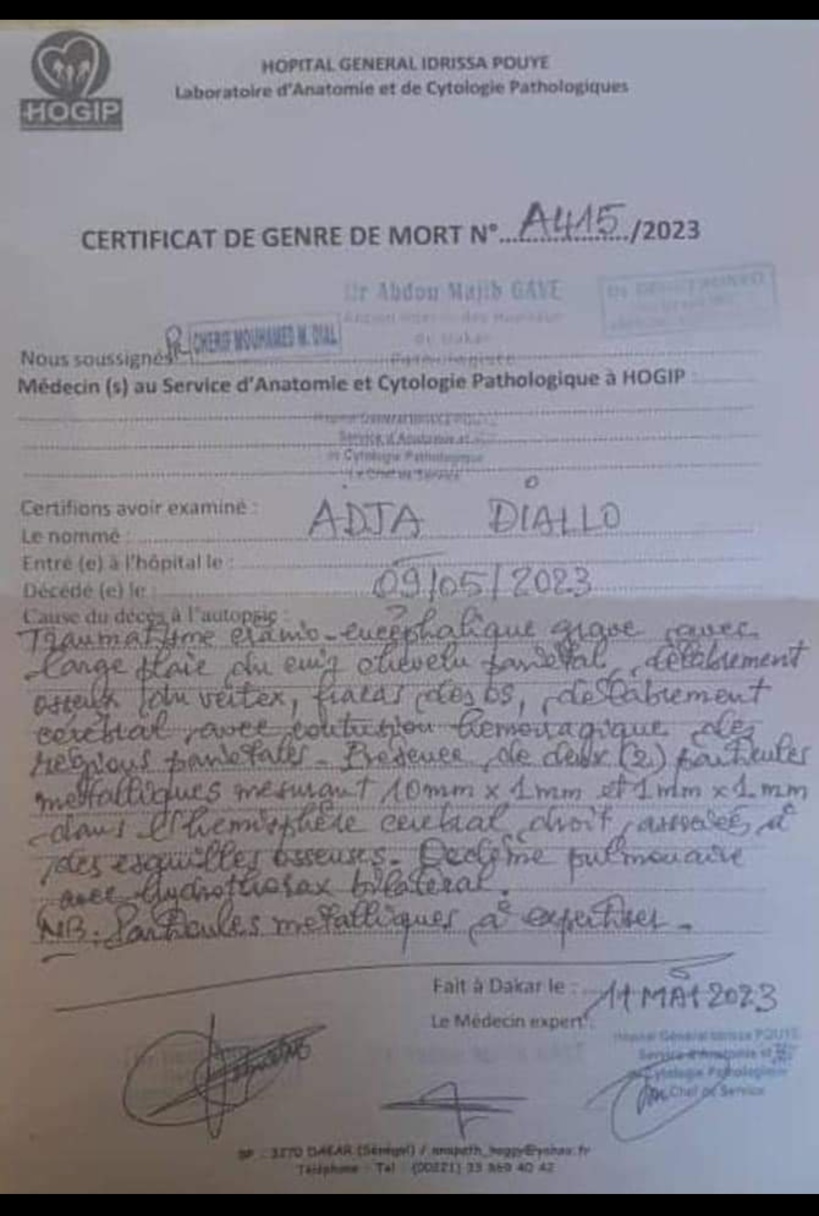 HOPITAL GENERAL IDRISSA POUYE
Laboratoire d'Anatomie et de Cytologie Pathologiques
HOGIP
CERTIFICAT DE GENRE DE MORT N° A415 /2023
Dr Abdou Majib GAYE
Pathologiste
Nous soussignés CHERIF MOUHAMED M. DIAL
Médecin (s) au Service d'Anatomie et Cytologie Pathologique à HOGIP :
Service d'Anatomie et
de Cytologie Pathologique
Le Chef de Service
Certifions avoir examiné :
Le nommé : ADJA DIALLO
Entré (e) à l'hôpital le :
Décédé (e) le : 09/05/2023
Cause du décès à l'autopsie :
Traumatisme crânio-encéphalique grave avec
large plaie du cuir chevelu pariétal, délabrement
osseux du vertex, fracas des os, délabrement
cérébral avec contusion hémorragique des
régions pariétales. Présence de deux (2) particules
métalliques mesurant 10mm x 1mm et 1mm x 1mm
dans l'hémisphère cérébral droit, associés à
des esquilles osseuses. Oedème pulmonaire
avec hydrothorax bilatéral.
NB: Particules métalliques à expertiser.
Fait à Dakar le : 11 MAI 2023
Le Médecin expert :
Hopital Général Idrissa POUYE
Service d'Anatomie et
Cytologie Pathologique
Chef de Service
BP : 3270 DAKAR (Sénégal) /
Téléphone : Tél : (00221) 33 869 40 42